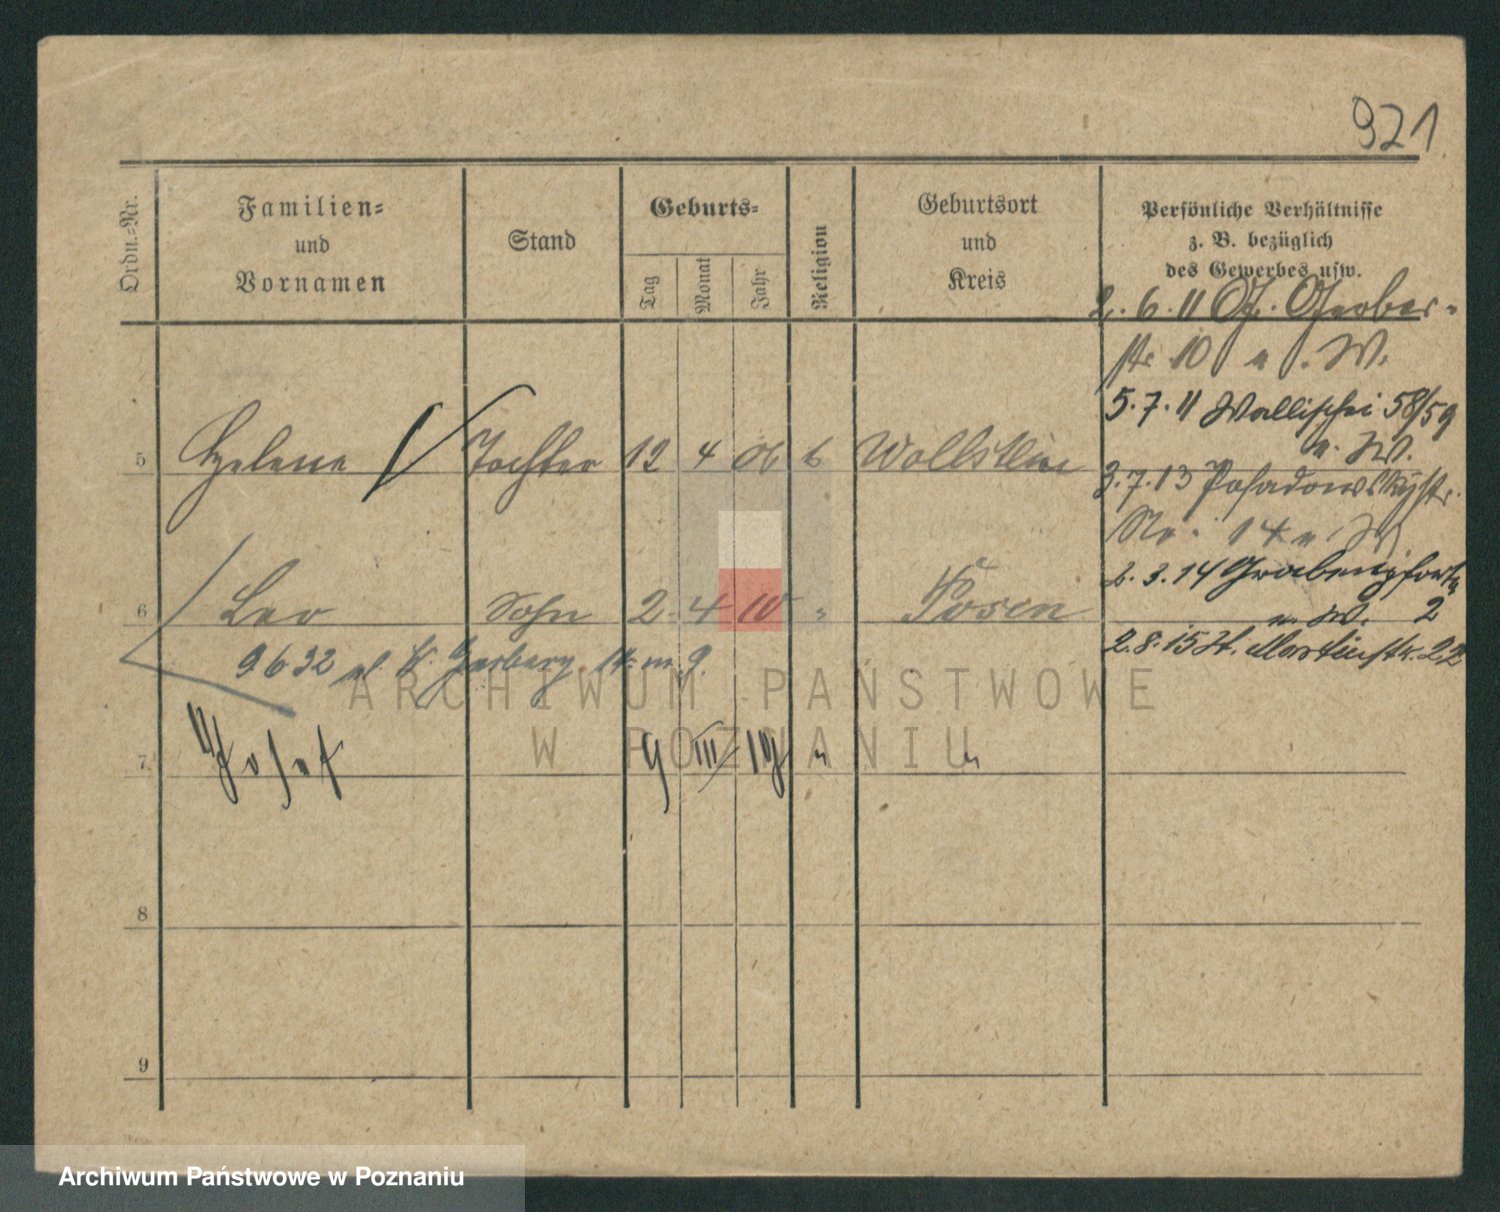 921
Ordn.-Nr.
Familien-
und
Vornamen
Stand
Geburts-
Tag
Monat
Jahr
Religion
Geburtsort
und
Kreis
Persönliche Verhältnisse
z. B. bezüglich
des Gewerbes usw.
2.6.11 Gr. Gerber-
str. 10 W.
5.7.11 Wallischei 58/59
W.
5 Helene Tochter 12 4 06 k Wollstein
3.7.13 Posadowskystr.
Nr. 14 W
2.3.14 Grabenpforte
W. 2
6 Leo Sohn 2. 4 10 " Posen
2.8.15 St. Martinstr. 22
9632 ul. W. Garbary m. 9.
7 Josef 9 III 19 " "
8
9
ARCHIWUM PAŃSTWOWE
W POZNANIU
Archiwum Państwowe w Poznaniu